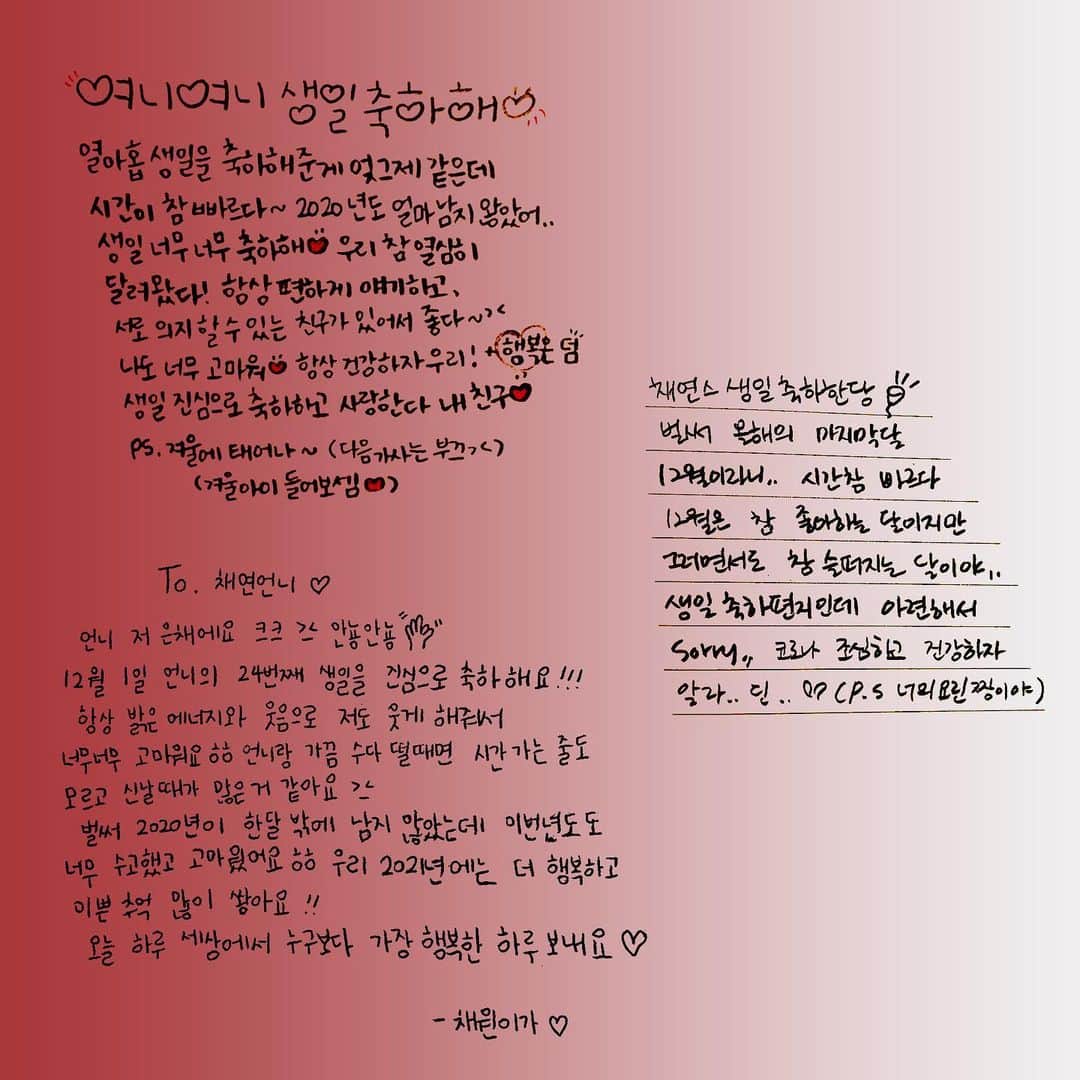 여니여니 생일축하해
열아홉 생일을 축하해준게 엊그제 같은데
시간이 참 빠르다~ 2020년도 얼마남지 않았어..
생일 너무너무 축하해♥ 우리 참 열심히
달려왔다! 항상 편하게 얘기하고,
서로 의지할 수 있는 친구가 있어서 좋다~><
나도 너무 고마워♥ 항상 건강하자 우리! +행복은 덤
생일 진심으로 축하하고 사랑한다 내 친구♥
PS. 겨울에 태어나~ (다음가사는 부끄><)
(겨울아이 들어보셈♥)
채연스 생일 축하한당
벌써 올해의 마지막달
12월이라니.. 시간참 빠르다
12월은 참 좋아하는 달이지만
그러면서도 참 슬퍼지는 달이야..
생일 축하편지인데 아련해서
Sorry,, 코로나 조심하고 건강하자
알라.. 딘.. ♡ (P.S 너의 요린 짱이야)
To. 채연언니 ♡
언니 저 은채에요 크크 >< 안뇽안뇽
12월 1일 언니의 24번째 생일을 진심으로 축하해요!!!
항상 밝은 에너지와 웃음으로 저도 웃게 해줘서
너무너무 고마워요 ㅎㅎ 언니랑 가끔 수다 떨때면 시간 가는 줄도
모르고 신날때가 많은거 같아요 ><
벌써 2020년이 한달 밖에 남지 않았는데 이번년도도
너무 수고했고 고마웠어요 ㅎㅎ 우리 2021년에는 더 행복하고
이쁜 추억 많이 쌓아요 !!
오늘 하루 세상에서 누구보다 가장 행복한 하루 보내요 ♡
- 채원이가 ♡